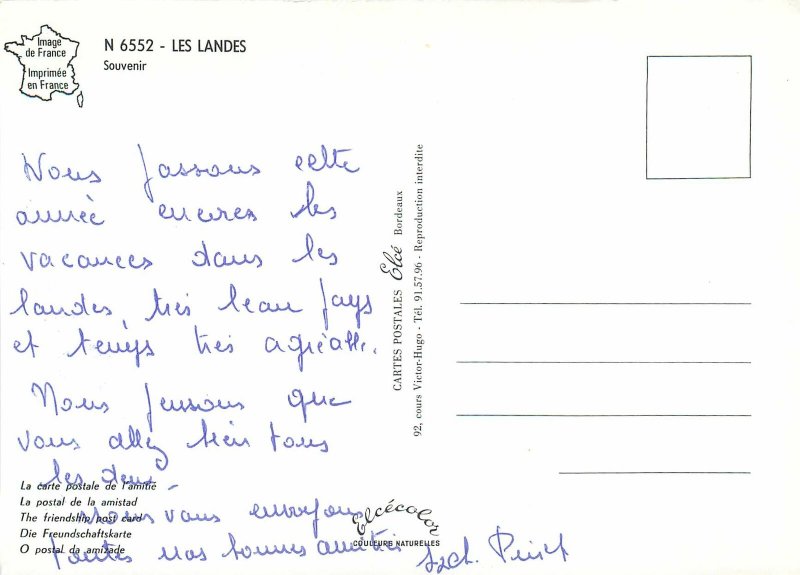 Image
de France
Imprimée
en France
N 6552 - LES LANDES
Souvenir
Nous passons cette
année encores les
vacances dans les
landes, très beau pays
et temps très agréable.
Nous pensons que
vous allez bien tous
les deux
Nous vous envoyons
toutes nos bonnes amitiés
La carte postale de l'amitié
La postal de la amistad
The friendship post card
Die Freundschaftskarte
O postal da amizade
Elcécolor
COULEURS NATURELLES
CARTES POSTALES Elcé Bordeaux
92, cours Victor-Hugo - Tél. 91.57.96 - Reproduction interdite